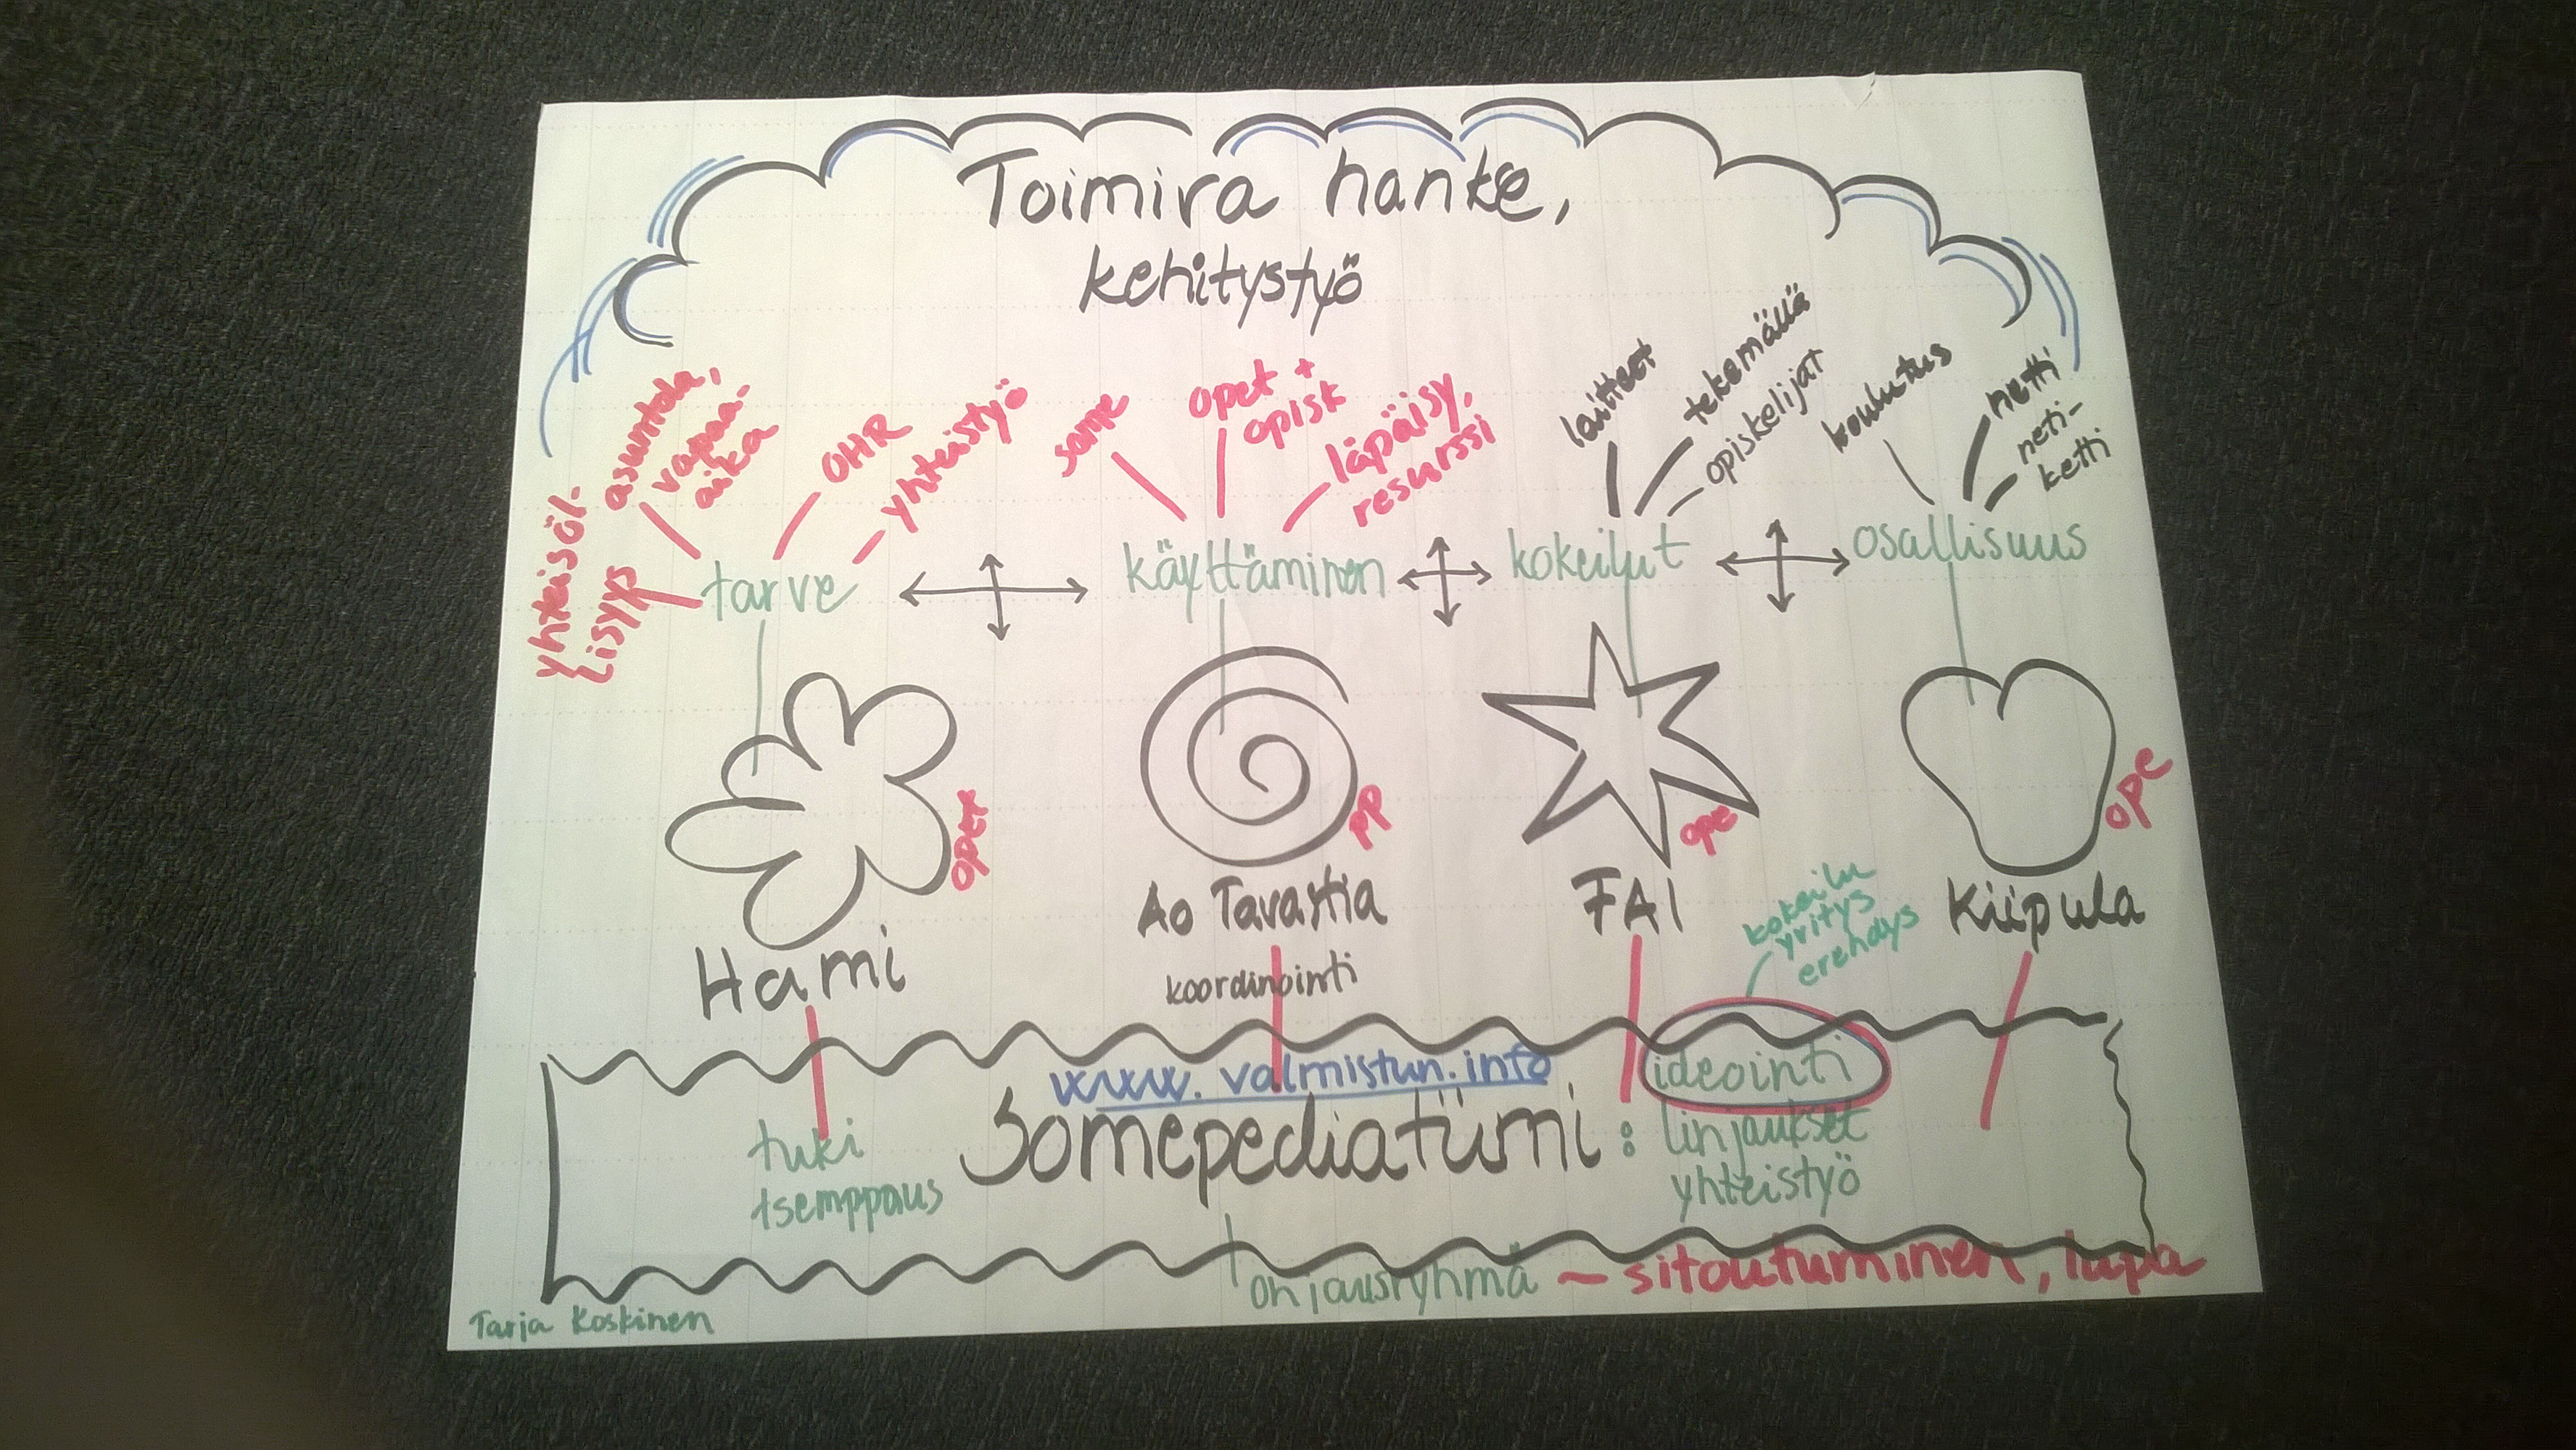 Toimiva hanke,
kehitystyö
yhteisöl-
lisyys
asuntola,
vapaa-
aika
OHR
yhteistyö
some
opet +
opisk
läpäisy,
resurssi
laitteet
tekemällä
opiskelijat
koulutus
netti
neti-
ketti
tarve
käyttäminen
kokeilut
osallisuus
opet
pp
ope
ope
Hami
Ao Tavastia
koordinointi
FAI
Kiipula
kokeilu
yritys
erehdys
www.valmistun.info
Somepediatiimi :
ideointi
linjaukset
yhteistyö
tuki
tsemppaus
ohjausryhmä ~ sitoutuminen, lupa
Tarja Koskinen